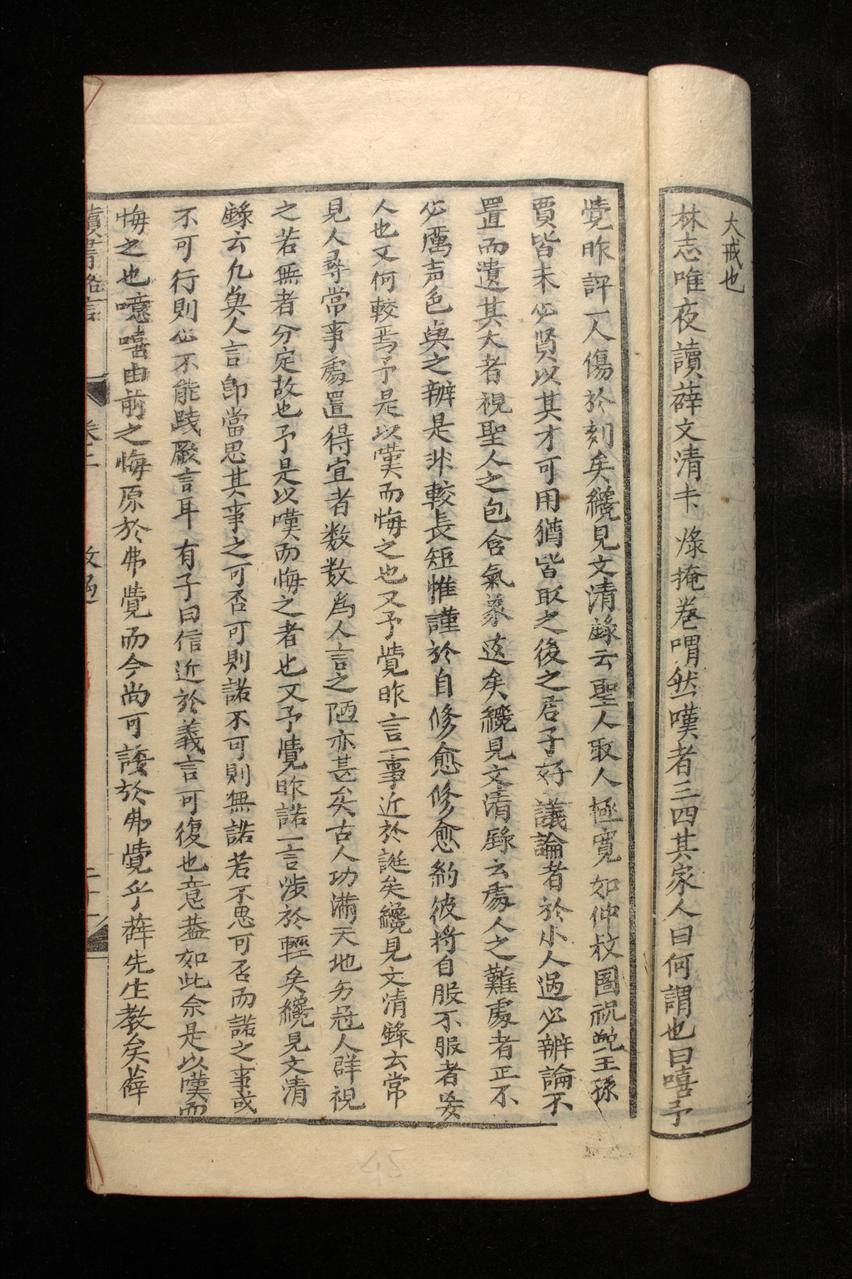 大戒也
林志唯夜讀薛文清卡 㷼掩卷喟然嘆者三四其家人曰何謂也曰嘻予
覺昨評一人傷於刻矣纔見文清錄云聖人取人極寬如仲叔圉祝鮀王孫
賈皆未必賢以其才可用猶皆取之後之君子好議論者於小人過必辨論不
置而遺其大者視聖人之包含氣象遠矣纔見文清錄云處人之難處者正不
必厲声色與之辨是非較長短惟謹於自修愈修愈約彼將自服不服者妄
人也又何較焉予是以嘆而悔之也又予覺昨言一事近於誕矣纔見文清錄云常
見人尋常事處置得宜者数数爲人言之陋亦甚矣古人功滿天地名冠人群視
之若無者分定故也予是以嘆而悔之者也又予覺昨諾一言涉於輕矣纔見文清
錄云凡與人言即當思其事之可否可則諾不可則無諾若不思可否而諾之事或
不可行則必不能踐厥言耳有子曰信近於義言可復也意葢如此余是以嘆而
悔之也噫嘻由前之悔原於弗覺而今尚可諉於弗覺乎薛先生教矣薛
讀書略言 卷二
45